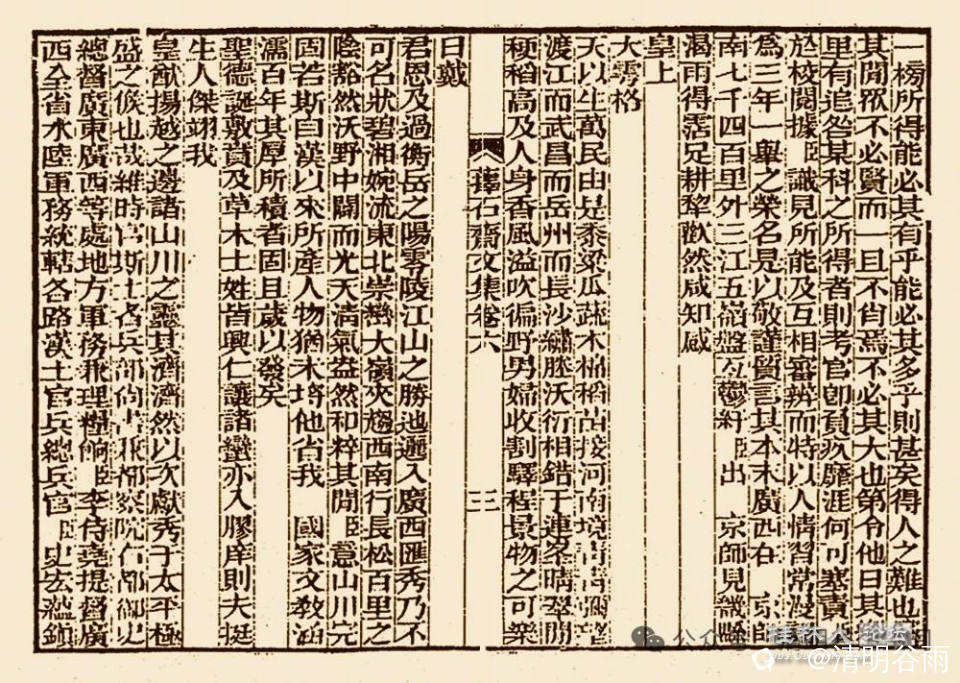 一榜所得能必其有乎能必其多乎則甚矣得人之難也
其間眾不必賢而一旦不肖焉不必其大也第令他日其
里有追咎某科之所得者則考官卽負疚靡涯何可塞責
於校閱據臣識見所能及互相審辨而特以人情習常
為三年一舉之榮名是以敬謹質言其本末廣西在 京師
南七千四百里外三江五嶺盤互鬱紆臣出 京師見畿縣
渴雨得霑足耕犂歡然咸知感
皇上
大雩格
天以生萬民由是黍粱瓜蔬木棉稻苗接河南境
渡江而武昌而岳州而長沙繡塍沃衍相錯于連
秔稻高及人身香風溢吹徧野男婦收割驛程景物之可樂
蘀石齋文集卷六 三
日戴
君恩及過衡岳之陽零陵江山之勝迤邐入廣西匯秀乃不
可名狀碧湘婉流東北崇巒大嶺夾趨西南行長松百里之
陰豁然沃野中闢而光天淸氣盎然和粹其閒臣意山川完
固若斯曰漢以來所產人物猶未埒他省我 國家文教涵
濡百年其厚所積者固且歲以發矣
聖德誕敷賁及草木士姓皆興仁讓諸蠻亦入膠庠則夫挺
生人傑翊我
皇猷揚越之邊諸山川之靈其濟濟然以次獻秀于太平極
盛之候也哉維時官斯土者兵部尚書兼都察院右都御史
總督廣東廣西等處地方軍務兼理糧餉臣李侍堯提督廣
西全省水陸軍務統轄各路漢土官兵總兵官臣史
公众
桂林人论坛
@清明谷雨